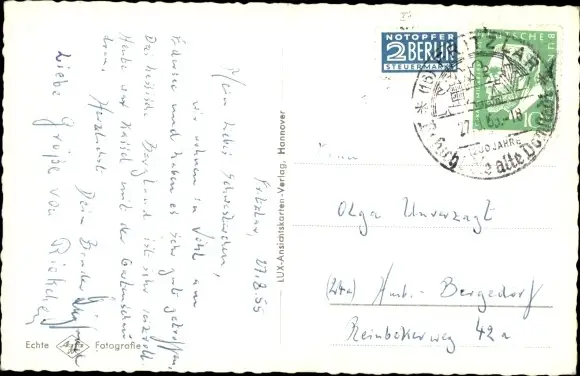 Fritzlar, 27.8.55
Mein liebes Schwesterchen,
wir wohnen in Vöhl am
Edersee und haben es sehr gut getroffen,
Das hessische Bergland ist sehr reizvoll.
Heute war Kassel mit der Gartenschau
dran. Herzlichst Dein Bruder
Liebe Grüße von
LUX-Ansichtskarten-Verlag, Hannover
Echte Fotografie
NOTOPFER
2 BERLIN
STEUERMARKE
DEUTSCHE BU
10
(16) FRITZLAR
27. -18
JAHRE
die alte Domstadt
Olga Unverzagt
Hmb.-Bergedorf
Reinbekerweg 42a